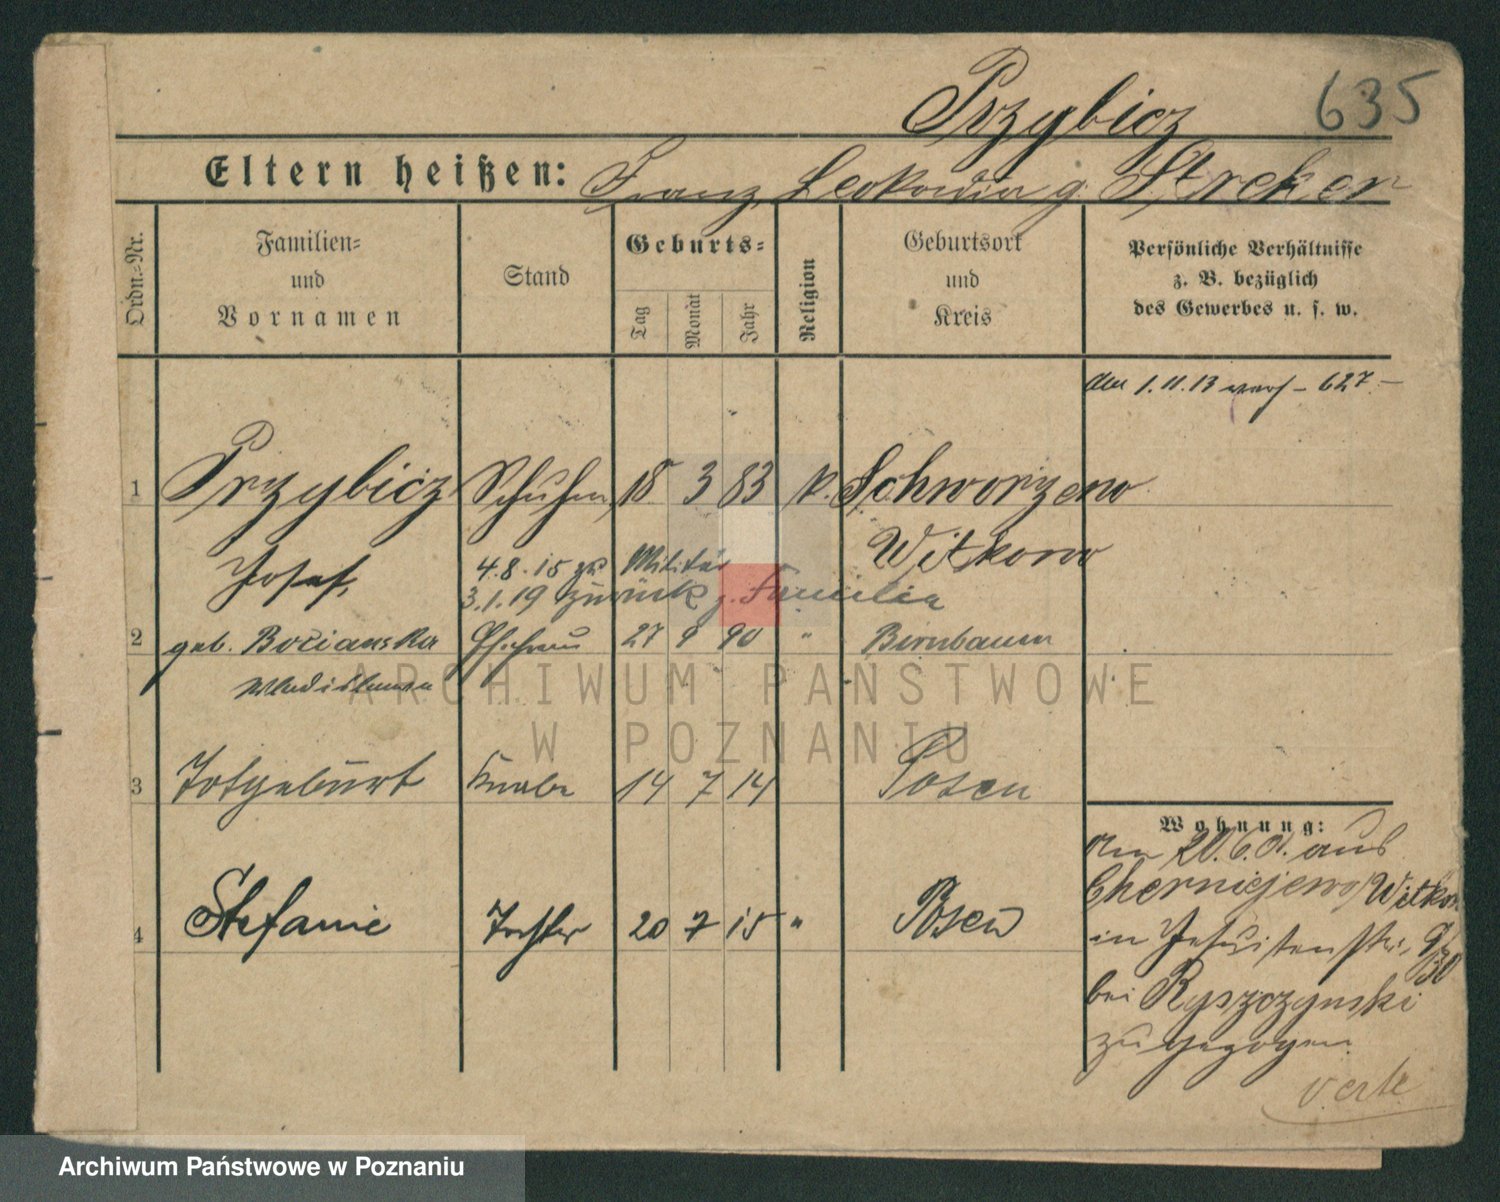 Przybicz 635
Eltern heißen: Franz, Leokadia g. Streker
Ordn.-Nr.
Familien- und Vornamen
Stand
Geburts-
Tag Monat Jahr
Religion
Geburtsort und Kreis
Persönliche Verhältnisse z. B. bezüglich des Gewerbes u. s. w.
den 1.11.13 – 627.–
1 Przybicz Schuhm. 18 3 83 k. Schwarzeno
Josef, Witkowo
4.8.15 zu Militär
3.1.19 zurück z. Familie
2 geb. Bocianska Ehefrau 27 9 90 " Birnbaum
Wladislawa
3 Totgeburt Knabe 14 7 14 Posen
4 Stefanie Tochter 20 7 15 " Posen
Wohnung:
Am 20.6.01. aus
Czerniejewo/Witkow
in Jesuitenstr. 9
bei Ryszczynski
zugezogen.
verte
ARCHIWUM PAŃSTWOWE
W POZNANIU
Archiwum Państwowe w Poznaniu